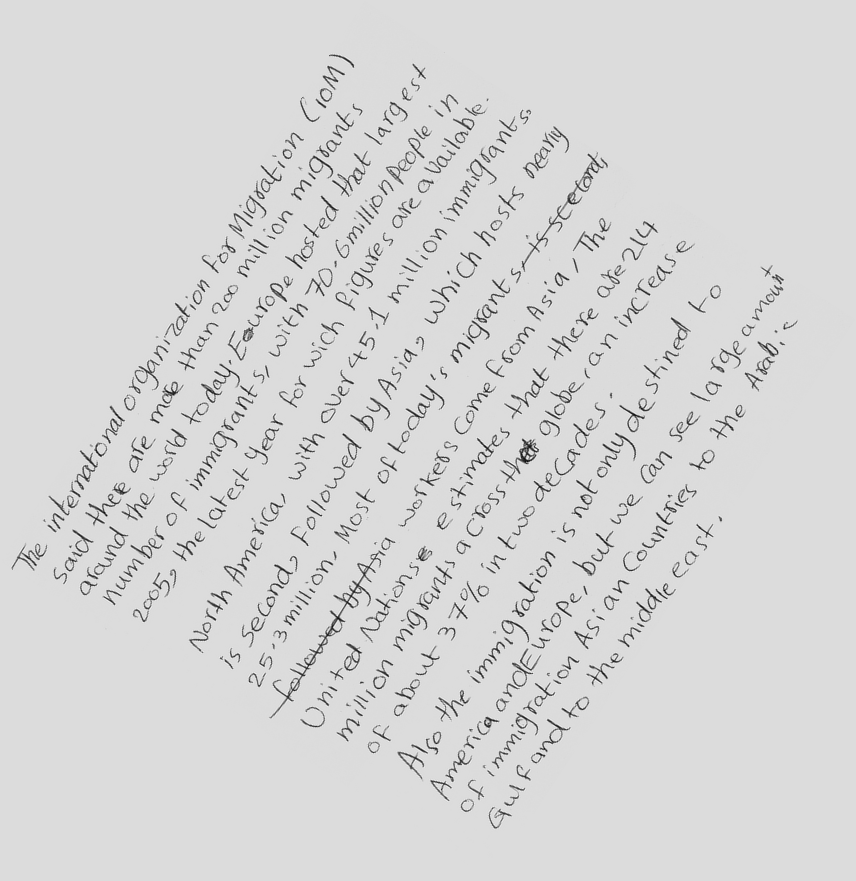 The international organization for Migration (IOM)
said there are more than 200 million migrants
around the world today, Europe hosted that largest
number of immigrants, with 70.6 million people in
2005, the latest year for wich figures are available.
North America, with over 45.1 million immigrants,
is second, Followed by Asia, which hosts nearly
25.3 million, Most of today's migrants, is second,
followed by Asia workers come from Asia, The
United Nations estimates that there are 214
million migrants across the globe, an increase
of about 37% in two decades.
Also the immigration is not only destined to
America and Europe, but we can see large amount
of immigration Asian Countries to the Arabic
Gulf and to the middle east.